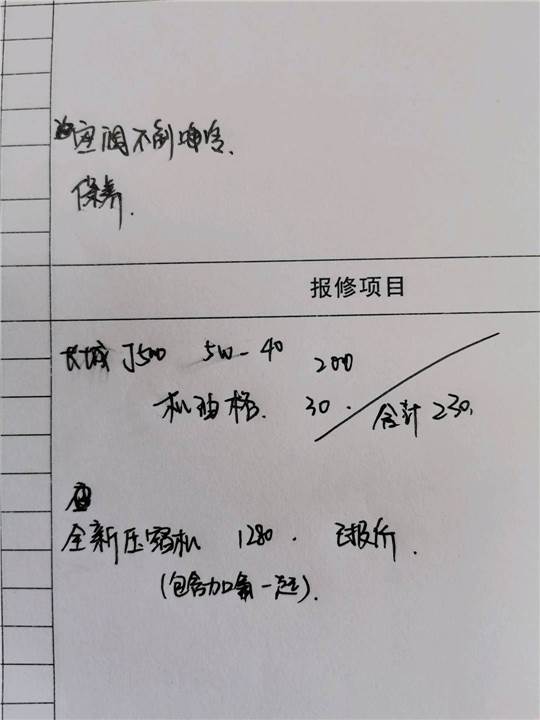 空调不制冷.
保养.
报修项目
长城 J500 5W-40 200
机油格. 30. 合计 230.
全新压缩机 1280. 已报价.
(包含加氟一起).